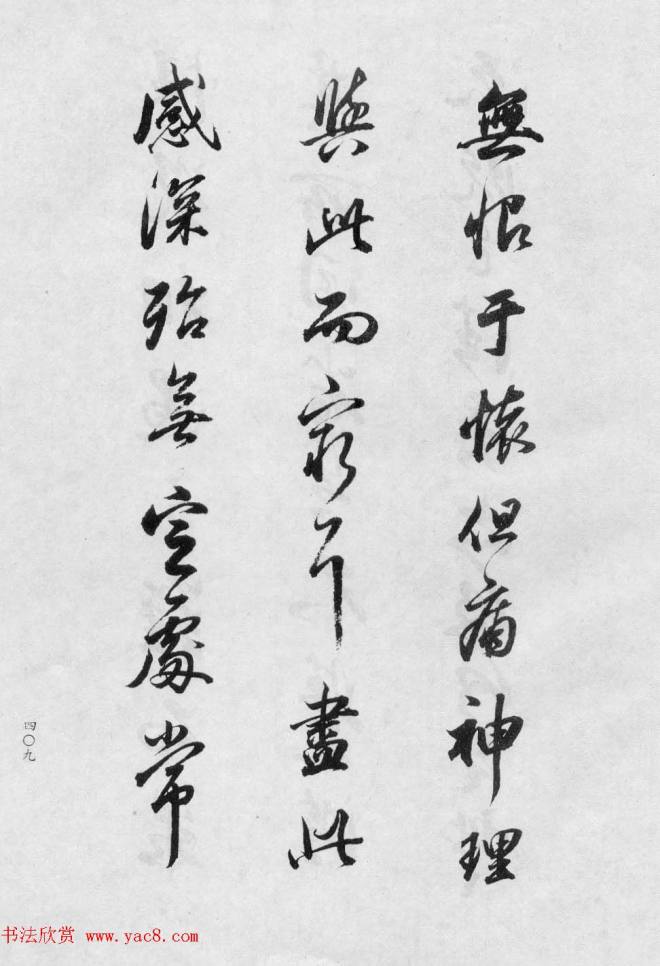 無恨于懷但痛神理
與此而窮耳盡此
感深殆無空處常
四〇九
书法欣赏 www.yac8.com